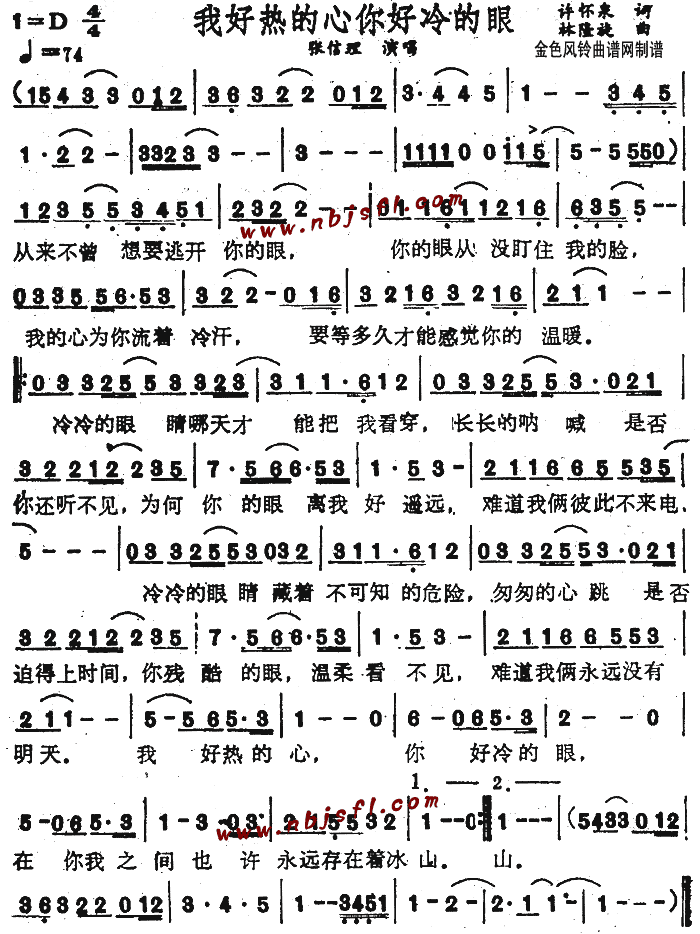 1=D 4/4 我好热的心你好冷的眼 许怀泉 词
♩=74 张信理 演唱 林隆旋 曲
金色风铃曲谱网制谱
(15433012 | 36322012 | 3·445 | 1-- 345 |
1·22- | 333233-- | 3--- | 111100i15 | 5-5550) |
123553451 | 23222-- | 011611216 | 66355-- |
www.nbjsfl.com
从来不曾 想要逃开 你的眼, 你的眼从 没盯住 我的脸,
033556·53 | 322-016 | 32163216 | 211-- |
我的心为你流着 冷汗, 要等多久才能感觉你的 温暖。
033255333233 | 311·612 | 0332553·021 |
冷冷的眼 睛哪天才 能把 我看穿, 长长的呐 喊 是否
322112235 | 7·566·53 | 1·53- | 2116655535 |
你还听不见,为何 你 的眼 离我 好 遥远, 难道我俩彼此不来电,
5--- | 0332553032 | 311·612 | 0332553·021 |
冷冷的眼 睛 藏着 不可知 的危险, 匆匆的心 跳 是否
322112235 | 7·566·53 | 1·53- | 211665553 |
迫得上时间,你残 酷 的眼,温柔 看 不见, 难道我俩永远没有
211-- | 5-565·3 | 1--0 | 6-065·3 | 2--0 |
明天。 我 好热的 心, 你 好冷的 眼,
1. 2.
5-065·3 | 1-3-03 | 2·25532 | 1--0 | 1-- | (5433012 |
www.nbjsfl.com
在 你我 之 间 也 许 永远存在着冰 山。 山。
36322012 | 3·4·5 | 1--3451 | 1-2- | 2·11·1 | 1---) |